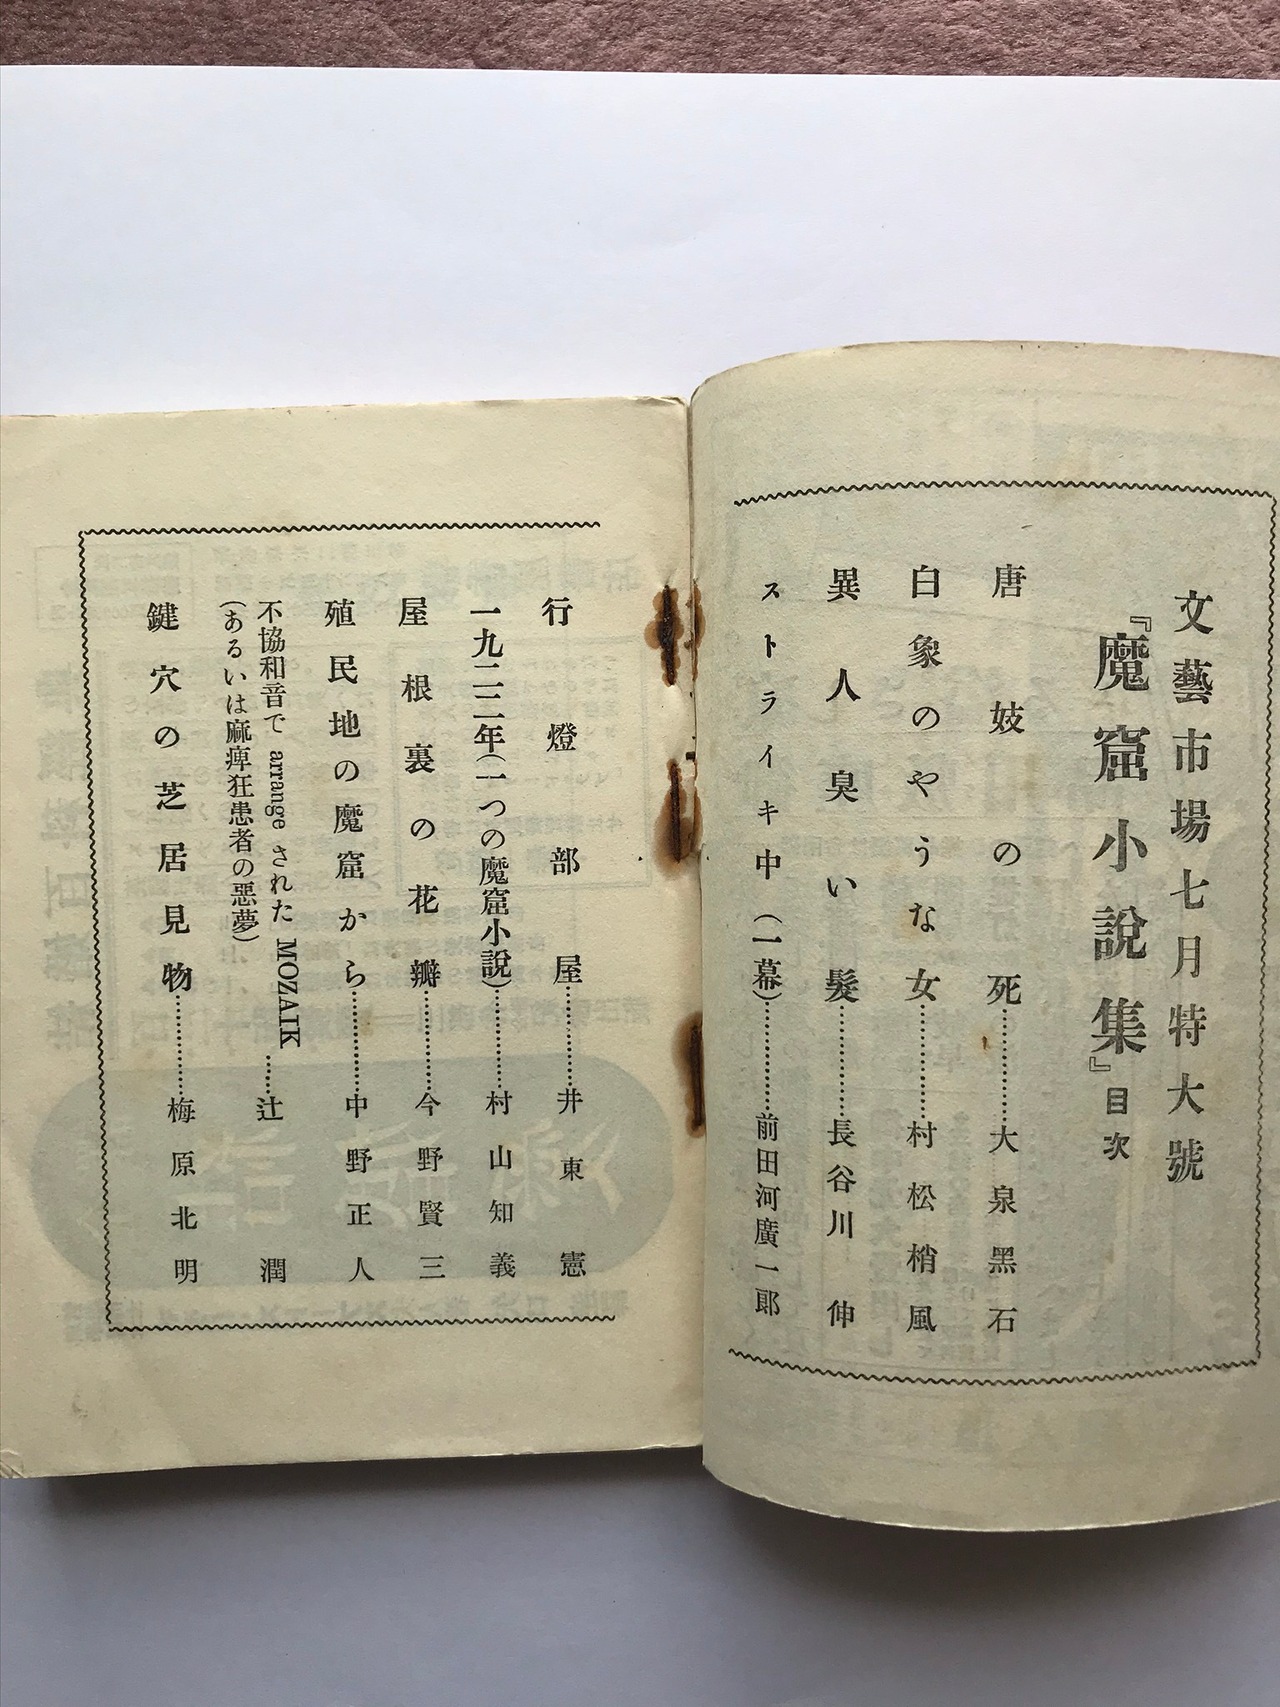 文藝市場七月特大號
『魔窟小說集』目次
唐妓の死…………大泉黑石
白象のやうな女…………村松梢風
異人臭い髮…………長谷川伸
ストライキ中（一幕）…………前田河廣一郎
行燈部屋…………井東憲
一九二二年（一つの魔窟小說）…………村山知義
屋根裏の花瓣…………今野賢三
殖民地の魔窟から…………中野正人
不協和音で arrange された MOZAIK……辻潤
（あるいは麻痺狂患者の惡夢）
鍵穴の芝居見物…………梅原北明